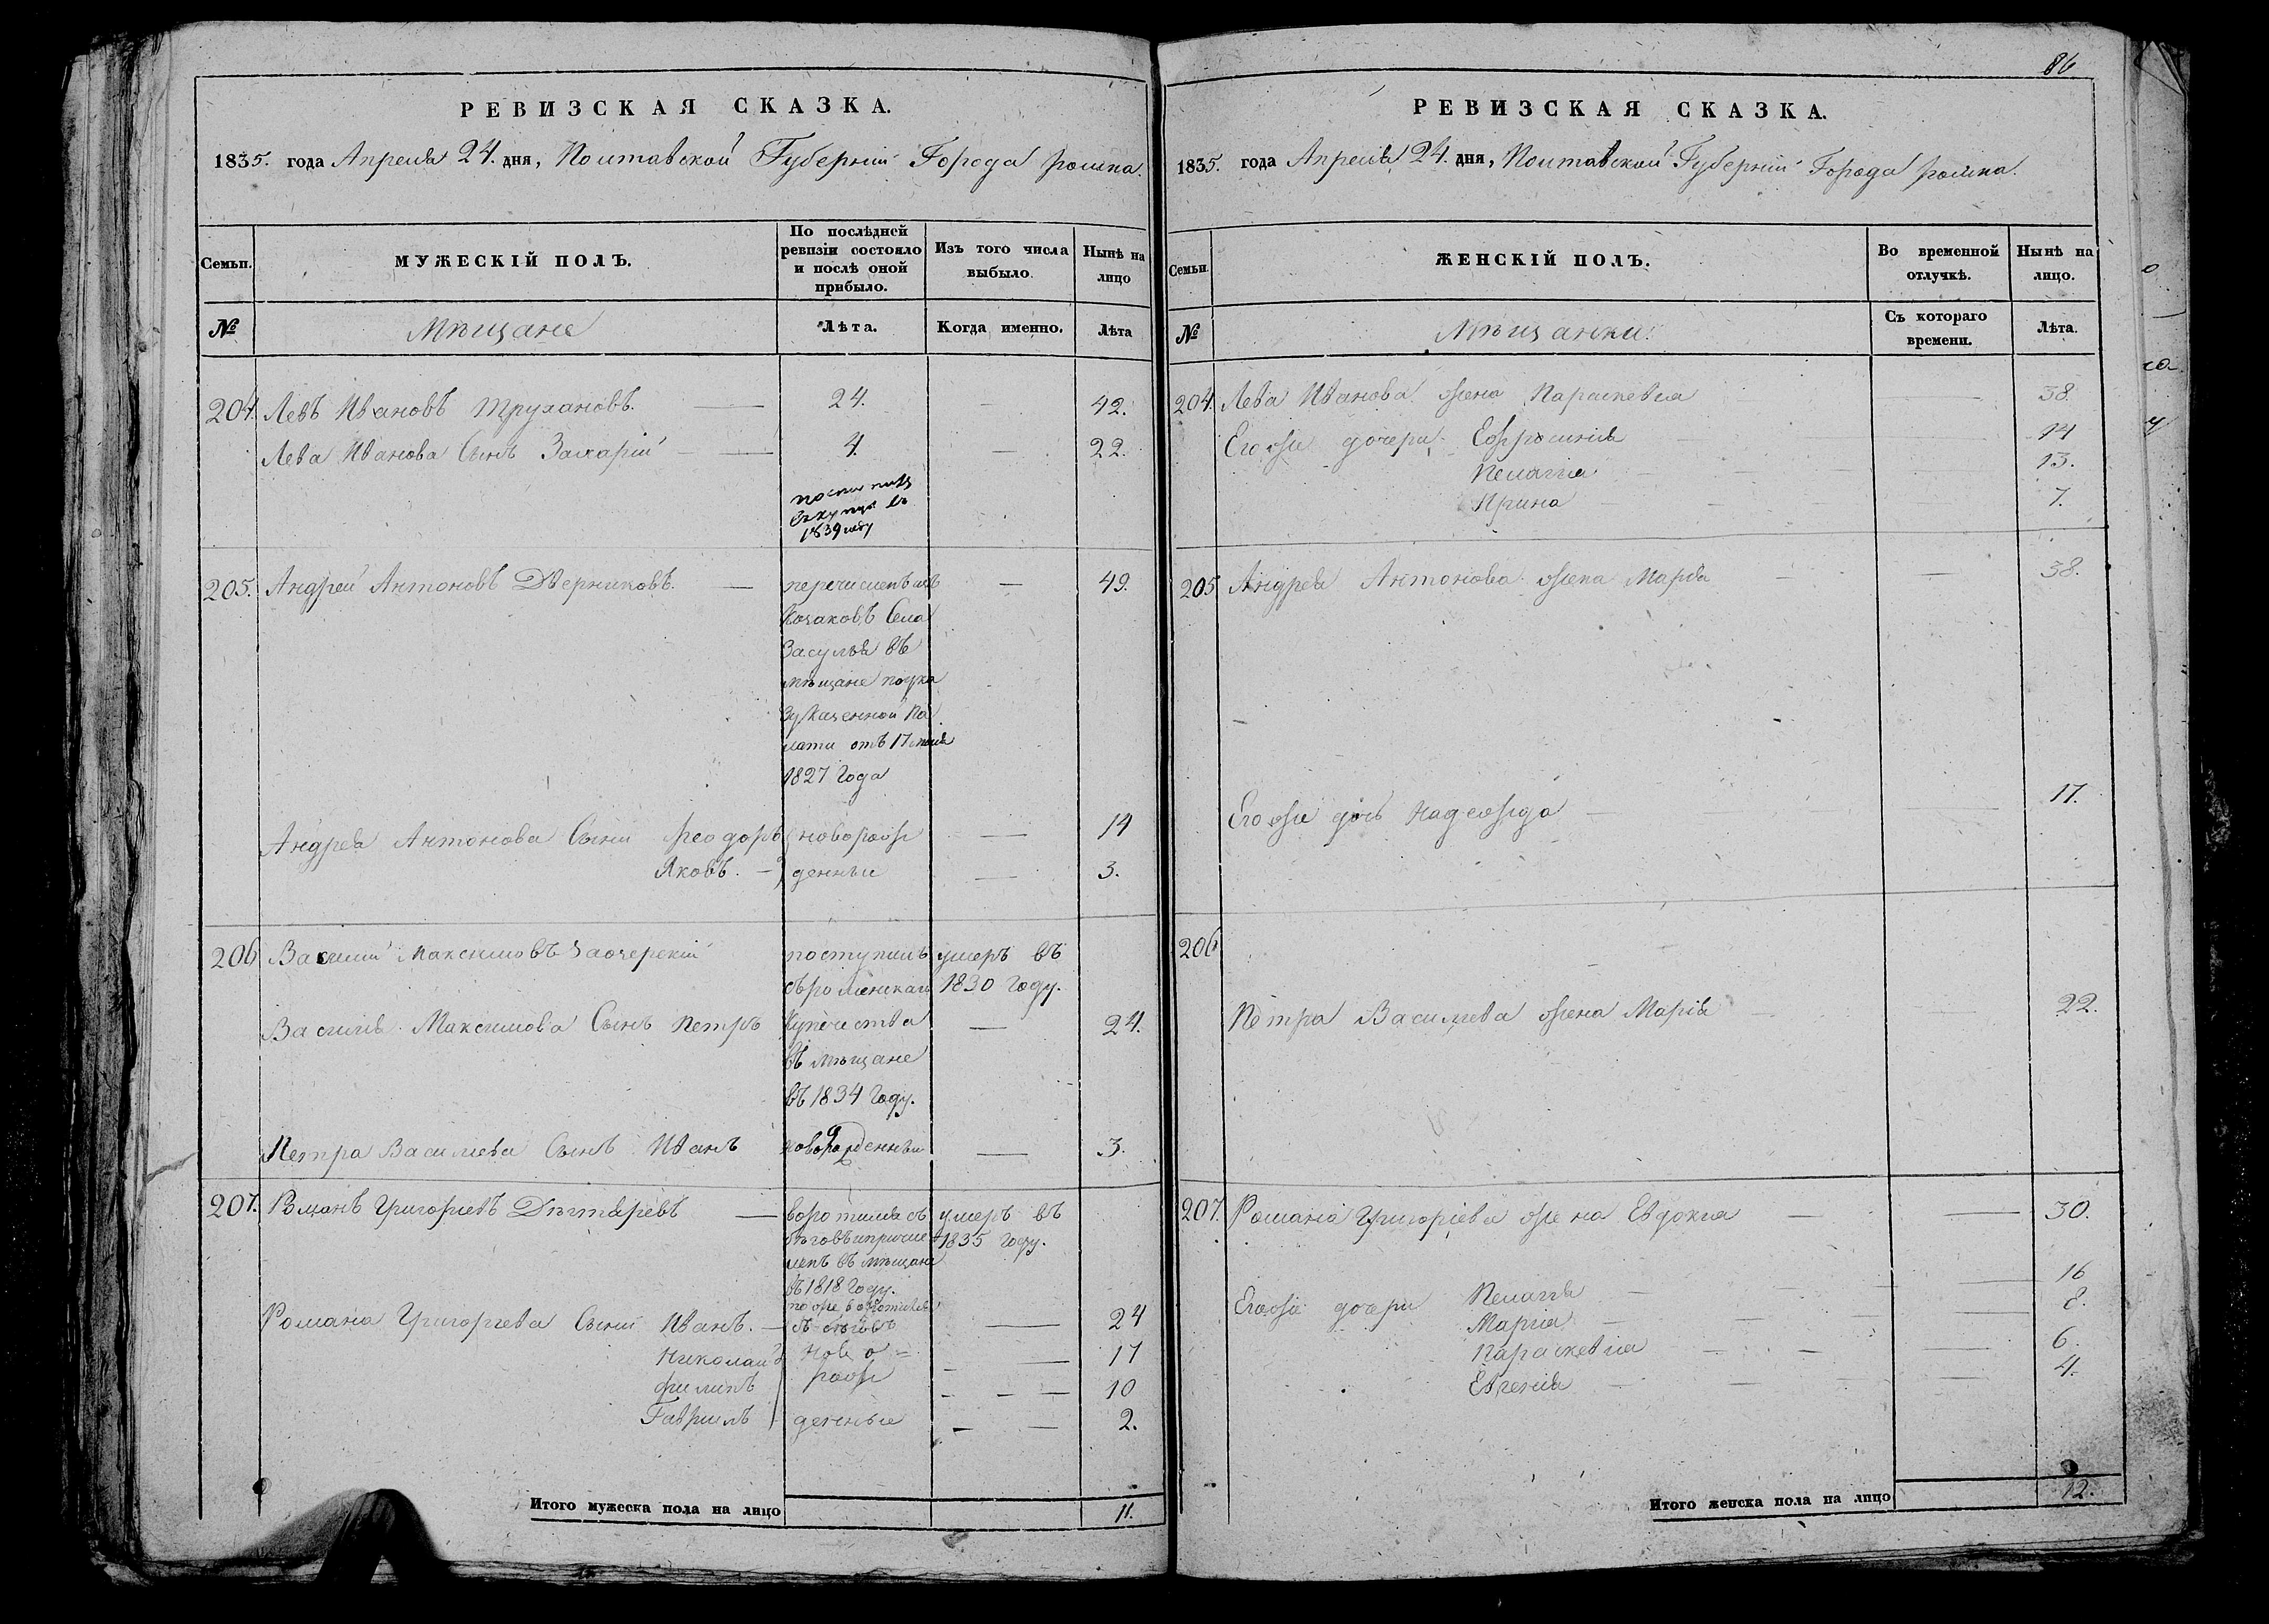 РЕВИЗСКАЯ СКАЗКА.
1835. года Апреля 24. дня, Полтавской Губернии Города ромна.
Семьи.
МУЖЕСКІЙ ПОЛЪ.
По послѣдней ревизіи состояло и послѣ оной прибыло.
Изъ того числа выбыло.
Нынѣ на лицо
№
Мѣщане
Лѣта.
Когда именно.
Лѣта
204. Левъ Ивановъ Трухановъ. 24. 42.
Лева Иванова Сынъ Захарій 4. 22.
1839 году
205. Андрей Антоновъ Дверниковъ. перечисленъ изъ 49.
Козаковъ Села
Засулья въ
мѣщане по ука
зу Казенной Па
латы отъ 17 июля
1827 Года
Андрея Антонова Сыни Феодоръ новорож 14
Яковъ. денныи 3.
206 Василий Максимовъ поступилъ умеръ въ
съ роменскаго 1830 Году.
Василия Максимова Сынъ Петръ Купечества 24.
въ мѣщане
въ 1834 Году.
Петра Василиева Сынъ Иванъ новорожденный 3.
207. Романъ Григориевъ Дѣгтяревъ воротился съ умеръ въ
бѣговъ и причис 1835 Году.
ленъ въ мѣщане
въ 1818 Году.
Романа Григориева Сыни Иванъ. тоже воротился съ бѣговъ 24
Николай ново= 17
Филипъ рож 10
Гавриилъ денныи 2.
Итого мужеска пола на лицо 11.
86
РЕВИЗСКАЯ СКАЗКА.
1835. года Апреля 24. дня, Полтавской Губернии Города ромна.
Семьи.
ЖЕНСКІЙ ПОЛЪ.
Во временной отлучкѣ.
Нынѣ на лицо.
№
Мѣщанки.
Съ котораго времени.
Лѣта.
204. Лева Иванова жена Параскевия 38.
Егоже дочери Ефросиния 14
Пелагия 13.
Ирина 7.
205 Андрея Антонова жена Марфа 38.
Егоже дочь Надежда 17.
206
Петра Василиева жена Мария 22.
207. Романа Григориева жена Евдокия 30.
Егоже дочери Пелагия 16
Мария 8.
Параскевия 6.
Евгения 4.
Итого женска пола на лицо 12.